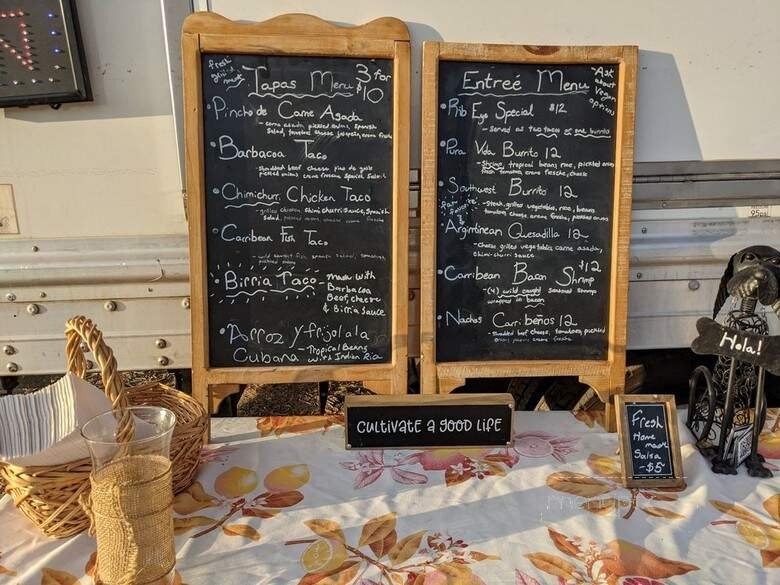 fresh
ground
meats
Tapas Menu 3 for
$10
Pincho de Carne Agada
- carne asada, pickled onions, Spanish
Salad, tomatoes cheese jalapeno, crema fresca
Barbacoa Taco
- Shredded beef cheese pico de gallo
pickled onions creme fresche, Spanish Salad
Chimichurri Chicken Taco
- grilled chicken, Chimichurri Sauce, Spanish
Salad, pickled onions, creme fresche
Carribean Fish Taco
- wild caught fish, spanish salad,
pickled onions
Birria Taco - made with
Barbacoa
Beef, cheese
& Birria Sauce
Arroz y frijol a la
Cubana - Tropical Beans
with Indian Rice
Entreé Menu
Ask
about
Vegan
options
Rib Eye Special $12
- served as two tacos or one burrito
Pura Vida Burrito 12
- Shrimp, tropical beans, rice, pickled onions
fresh tomatoes, creme fresche, cheese
Southwest Burrito 12
- Steak, grilled vegetables, rice, beans,
tomatoes, cheese, creme fresche, pickled onions
Argintinean Quesadilla 12
- cheese, grilled vegetables, carne asada,
chimi-churri sauce
Carribean Bacon Shrimp $12
- (4) wild caught seasoned shrimp
wrapped in bacon
Nachos Caribeños 12
- Shredded beef, cheese, tomatoes, pickled
onions, creme fresche
95psi
Hola!
CULTIVATE A GOOD LIFE
Fresh
Home
made
Salsa
- $5